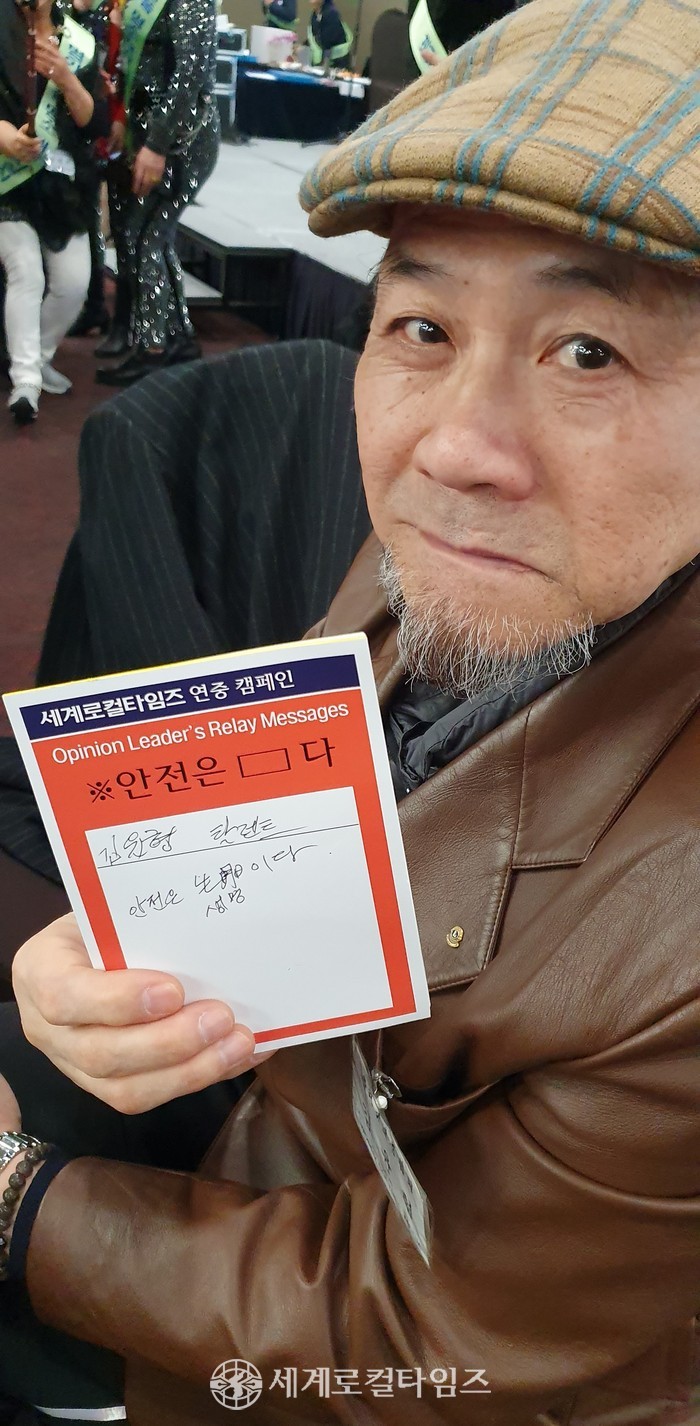 세계로컬타임즈 연중 캠페인
Opinion Leader's Relay Messages
※안전은 □ 다
탤런트
안전은 生命이다.
생명
세계로컬타임즈